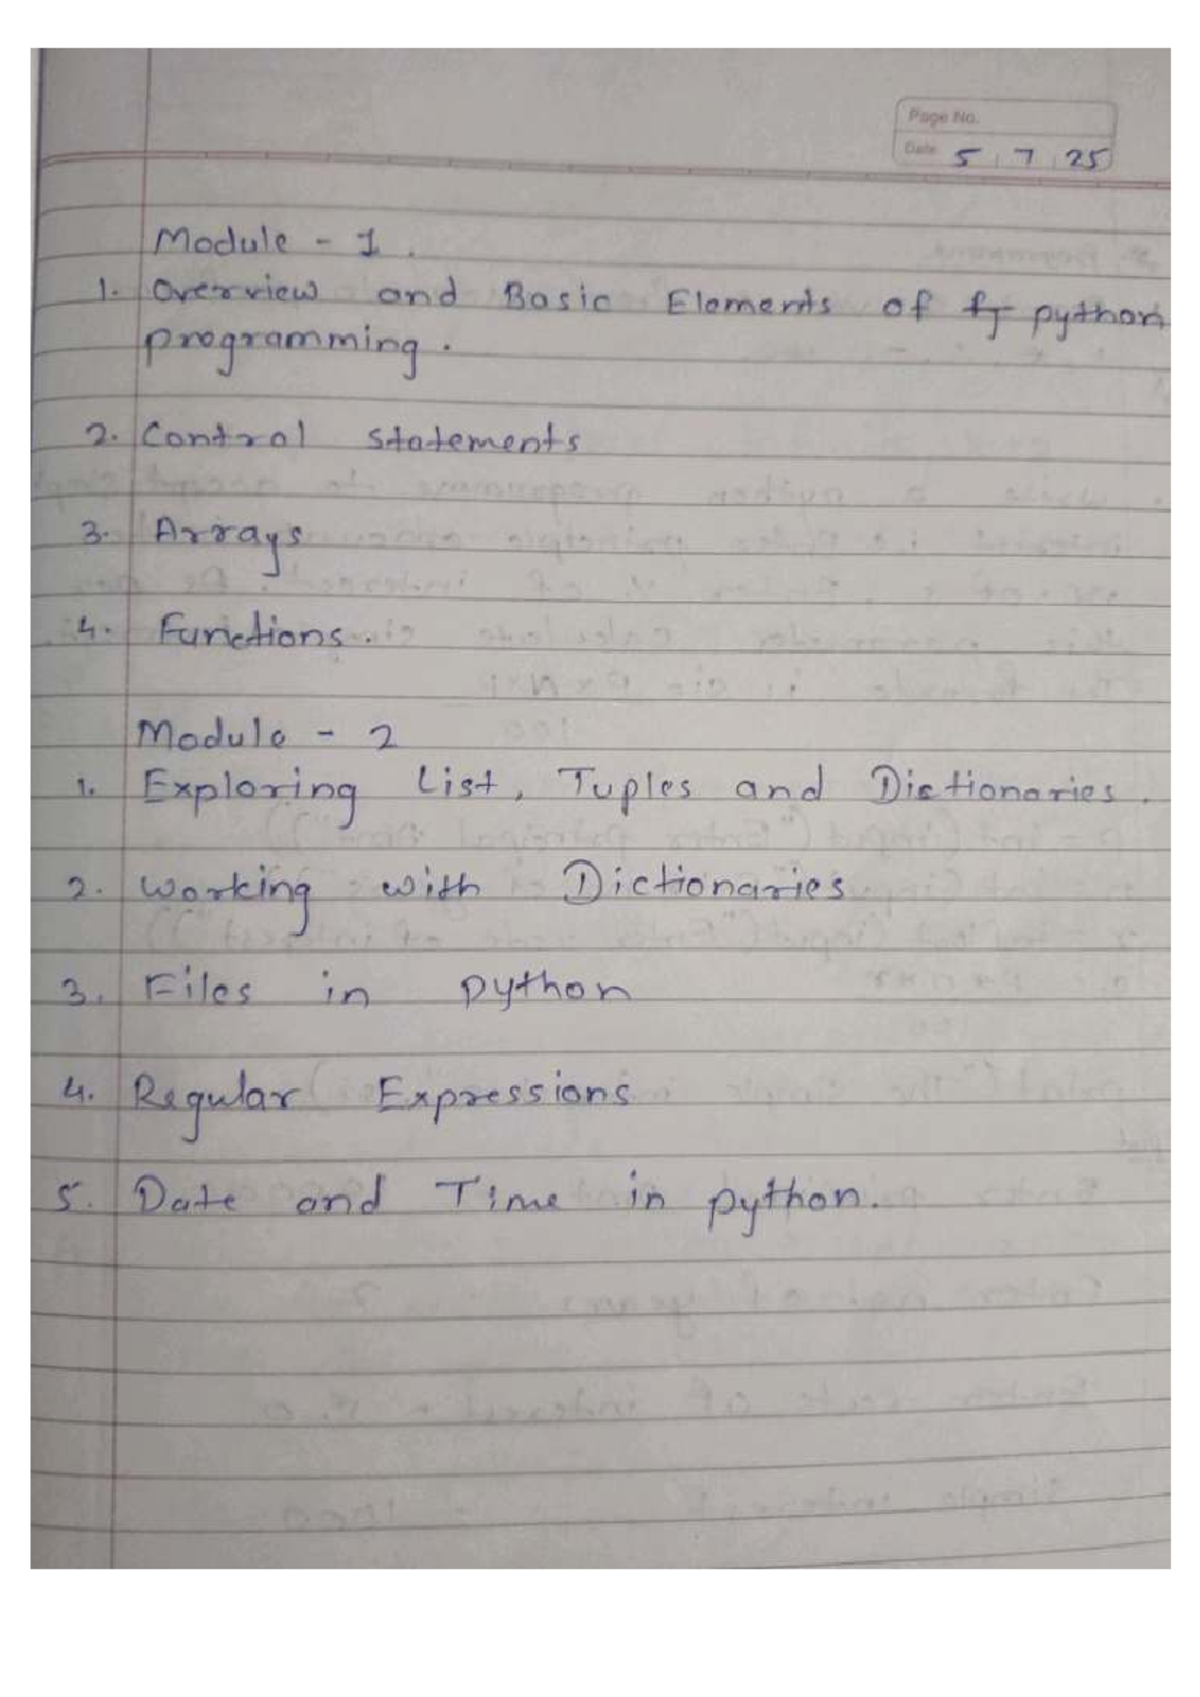 Page No.
Date 5 7 25
Module - 1.
1. Overview and Basic Elements of python
programming.
2. Control statements
3. Arrays
4. Functions.
Module - 2
1. Exploring List, Tuples and Dictionaries.
2. working with Dictionaries
3. Files in python
4. Regular Expressions
5. Date and Time in python.